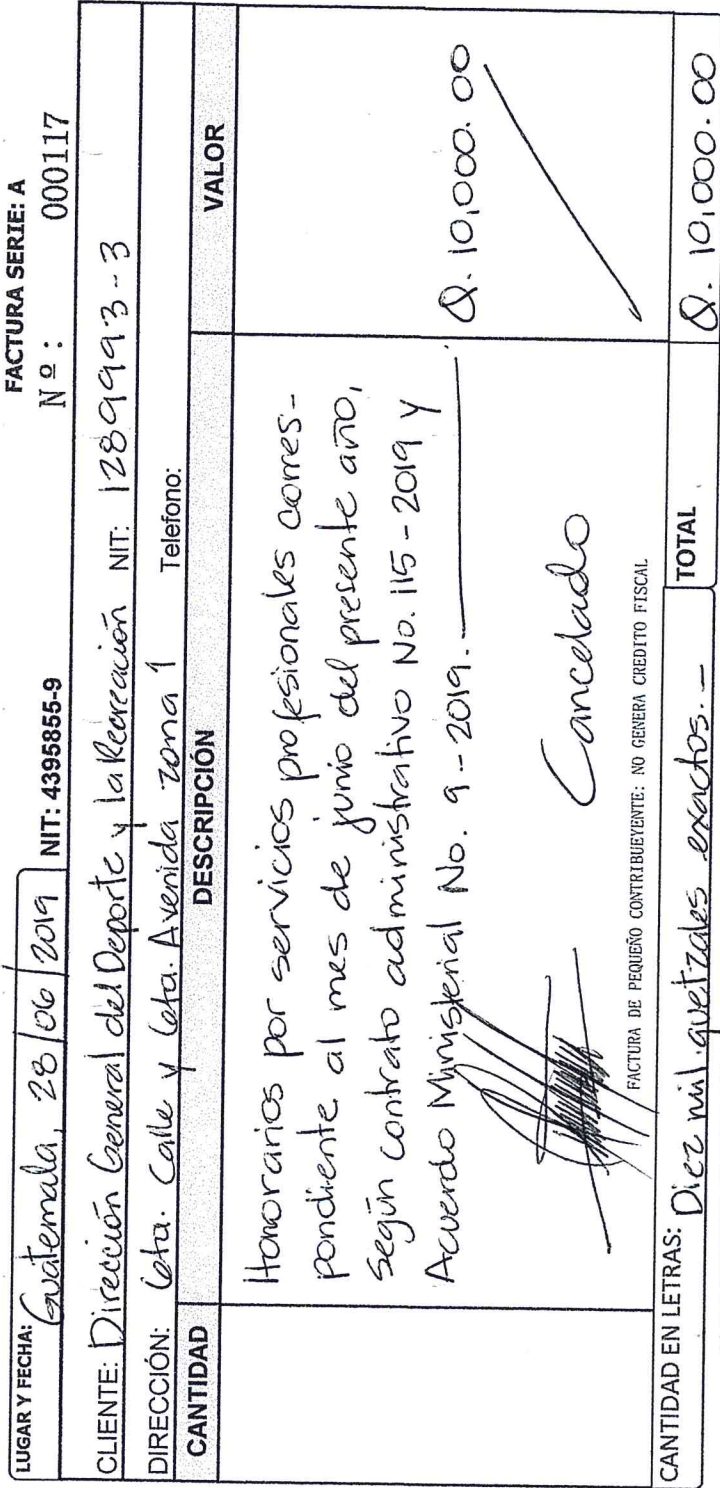 FACTURA SERIE: A
Nº: 000117
LUGAR Y FECHA: Guatemala, 28/06/2019 NIT: 4395855-9
CLIENTE: Dirección General del Deporte y la Recreación NIT: 1289993-3
DIRECCIÓN: 6ta. Calle y 6ta. Avenida zona 1 Telefono:
CANTIDAD DESCRIPCIÓN VALOR
Honorarios por servicios profesionales corres-
pondiente al mes de junio del presente año,
según contrato administrativo No. 115-2019 y
Acuerdo Ministerial No. 9-2019.- Q. 10,000.00
Cancelado
FACTURA DE PEQUEÑO CONTRIBUEYENTE: NO GENERA CREDITO FISCAL
CANTIDAD EN LETRAS: Diez mil quetzales exactos.- TOTAL Q. 10,000.00